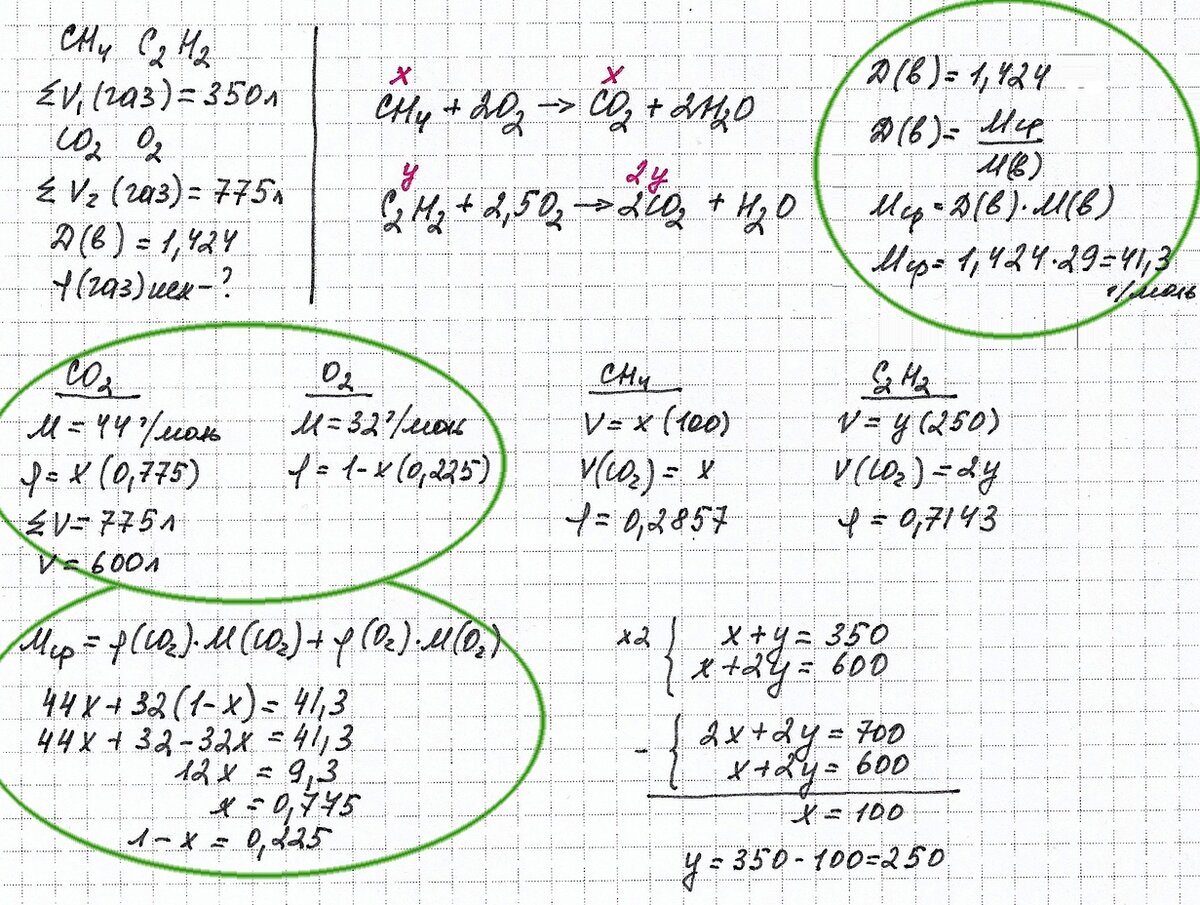 CH₄ C₂H₂
ΣV₁(газ) = 350л
CO₂ O₂
ΣV₂(газ) = 775л
D(в) = 1,424
φ(газ)исх - ?
x x
CH₄ + 2O₂ → CO₂ + 2H₂O
y 2y
C₂H₂ + 2,5O₂ → 2CO₂ + H₂O
D(в) = 1,424
D(в) = Mср / M(в)
Mср = D(в)·M(в)
Mср = 1,424·29 = 41,3 г/моль
CO₂
M = 44 г/моль
φ = x (0,775)
ΣV = 775л
V = 600л
O₂
M = 32 г/моль
φ = 1-x (0,225)
CH₄
V = x (100)
V(CO₂) = x
φ = 0,2857
C₂H₂
V = y (250)
V(CO₂) = 2y
φ = 0,7143
Mср = φ(CO₂)·M(CO₂) + φ(O₂)·M(O₂)
44x + 32(1-x) = 41,3
44x + 32 - 32x = 41,3
12x = 9,3
x = 0,775
1-x = 0,225
x2 { x + y = 350
x + 2y = 600
- { 2x + 2y = 700
x + 2y = 600
x = 100
y = 350 - 100 = 250